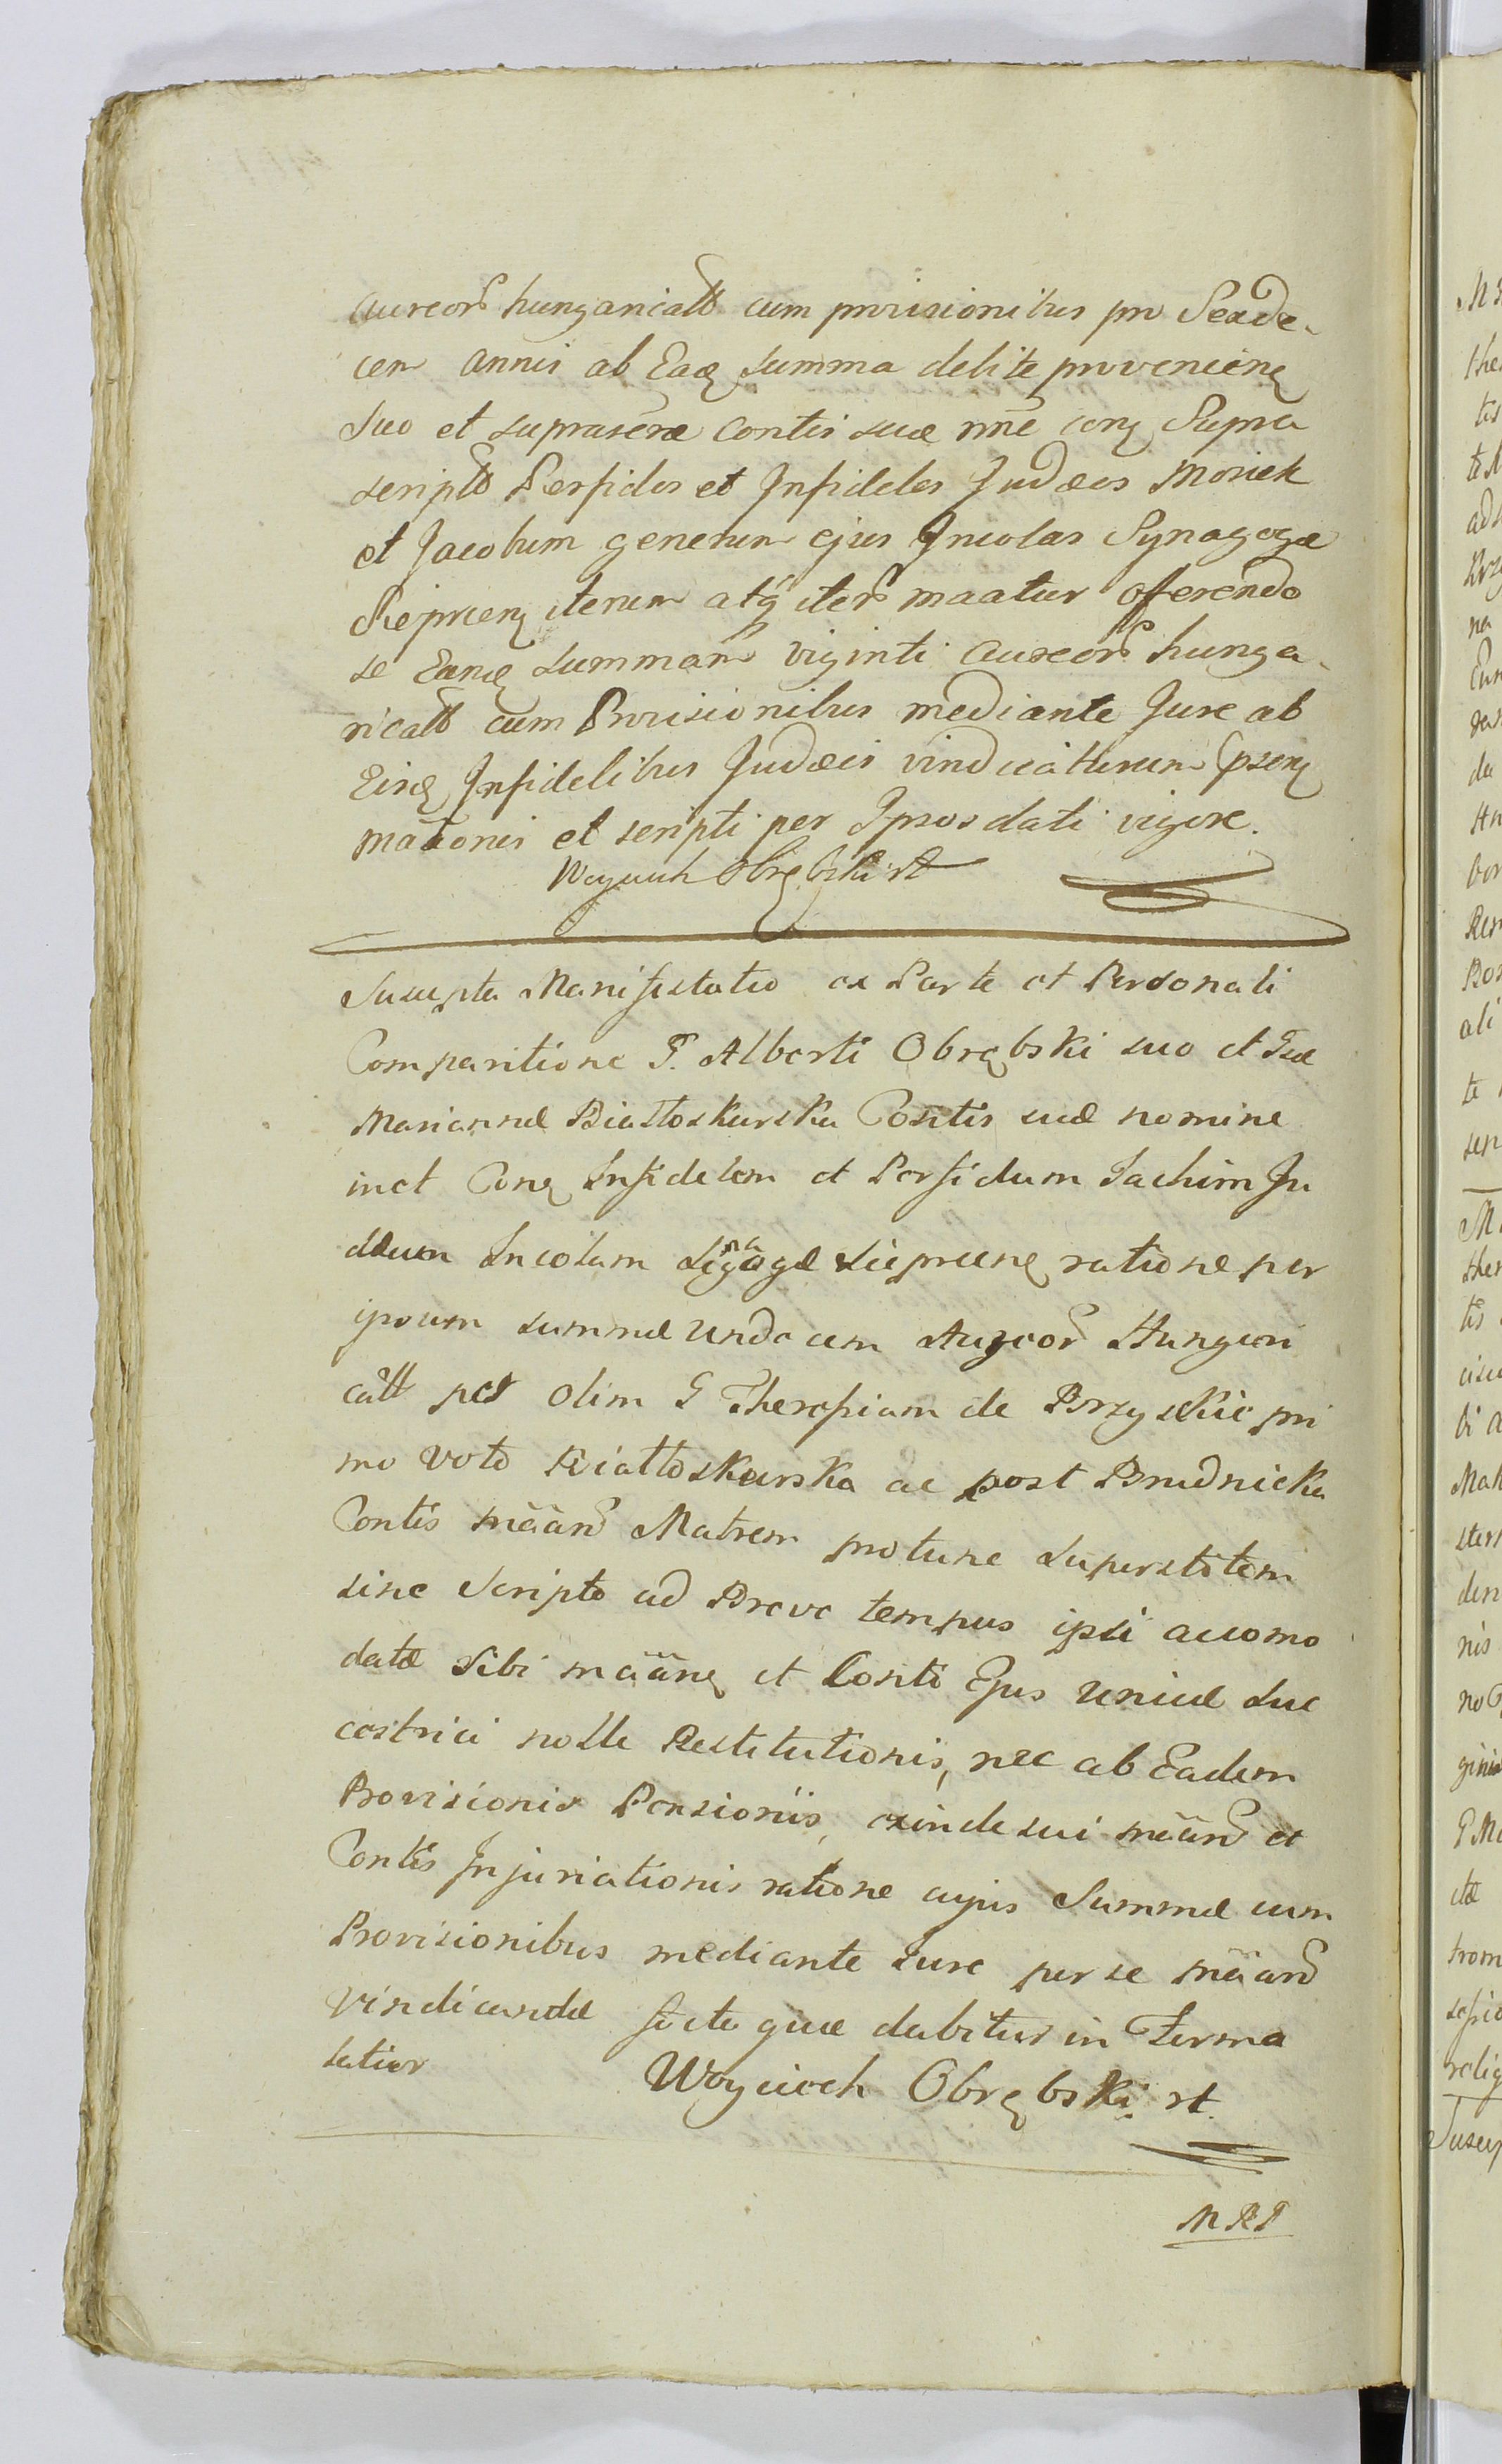 aureor hungaricall cum provisionibus pro Sexde-
cem annis ab Eaq summa debite provenienq
suo et suprascræ contis suæ nne conq Supra
scriptt Perfidos et Infideles Judæos Moriek
et Jacobum generum ejus Incolas Synagogæ
Sieprcenq iterum atq iter maatur offerendo
se Eanq summam viginti aureor hunga-
ricall cum Provisionibus mediante Jure ab
Eisq Infidelibus Judæis vindicaturum psenq
maonis et scripti per Ipsos dati vigore.
Woyciech Obrębski rt
Suscepta Manifestatio ex Parte et Personali
Comparitione G. Alberti Obrębski suo et Gsæ
Mariannæ Białłoskurska Contis suæ nomine
inct Conq Infidelem et Perfidum Jachim Ju
dæum Incolam Sinagogæ Sieprcenq ratione per
ipsum summæ undecem Aureor Hungari
call per olim G Theresiam de Brzyskie pri
mo voto Białłoskurska ac post Brudnicka
Contis mãan Matrem protunc superstitem
sine Scripto ad Breve tempus ipsi accomo
datæ Sibi mãanq et Conti Ejus unicæ Suc
cestrici nolle Restitutionis, nec ab Eadem
Provisionis Pensionis, exinde sui mãan et
Contis Injuriationis ratione cujus Summæ cum
Provisionibus mediante Jure per se mãan
vindicandæ facta quæ dabitur in Forma
latior
Woyciech Obrębski rt.